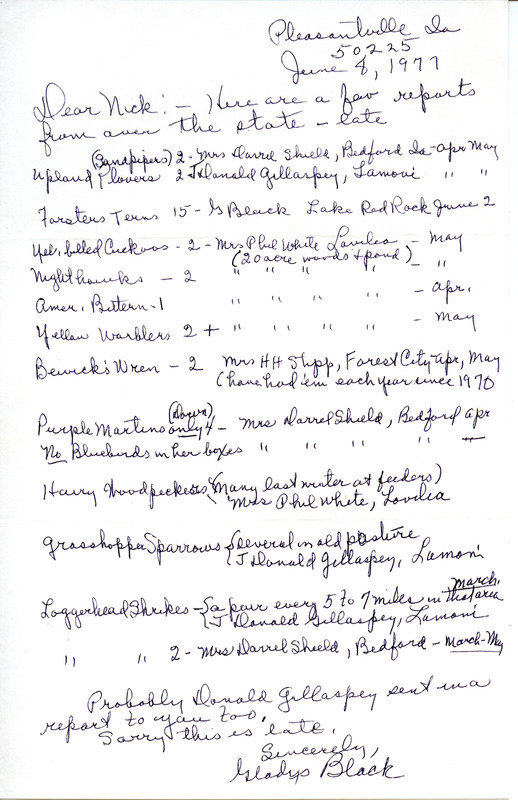 Pleasantville Ia
50225
June 8, 1977
Dear Nick: - Here are a few reports
from over the state - late
(Sandpipers) 2 - Mrs Darrel Shield, Bedford Ia - Apr May
Upland Plovers 2 J Donald Gillaspey, Lamoni " "
Forsters Terns 15 - G Black Lake Red Rock June 2
Yel. billed Cuckoos - 2 - Mrs Phil White Lovilia - May
(20 acre woods + pond)
Nighthawks - 2 " " " " - "
Amer. Bittern - 1 " " " " - Apr.
Yellow Warblers 2 + " " " " - May
Bewick's Wren - 2 Mrs HH Shpp, Forest City - Apr, May
(have had 'em each year since 1970
(Down)
Purple Martins only 4 - Mrs Darrel Shield, Bedford Apr
No Bluebirds in her boxes " " " " "
Hairy Woodpeckers (Many last winter at feeders)
Mrs Phil White, Lovilia
Grasshopper Sparrows - {Several in old pasture
J Donald Gillaspey, Lamoni
Loggerhead Shrikes - {a pair every 5 to 7 miles in that area March,
J Donald Gillaspey, Lamoni
" " 2 - Mrs Darrel Shield, Bedford - March-May
Probably Donald Gillaspey sent in a
report to you too.
Sorry this is late.
Sincerely,
Gladys Black